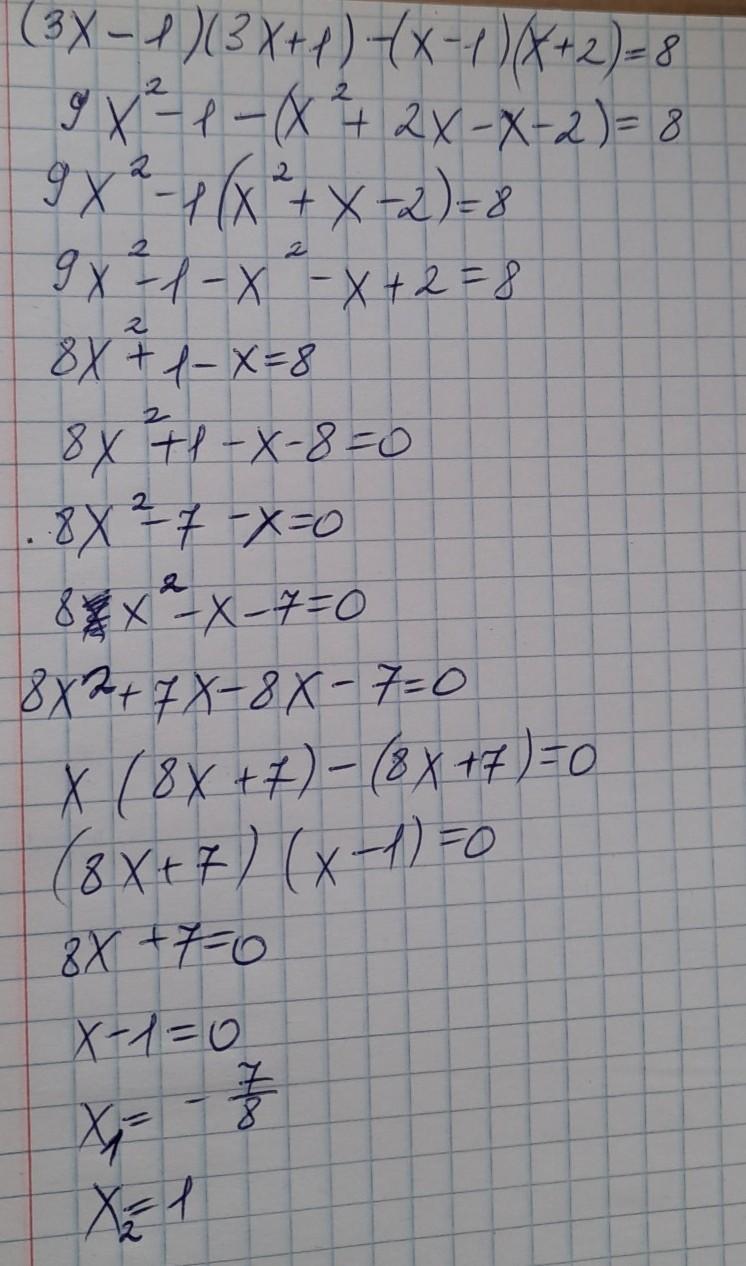 (3x-1)(3x+1)-(x-1)(x+2)=8
9x²-1-(x²+2x-x-2)=8
9x²-1(x²+x-2)=8
9x²-1-x²-x+2=8
8x²+1-x=8
8x²+1-x-8=0
.8x²-7-x=0
8x²-x-7=0
8x²+7x-8x-7=0
x(8x+7)-(8x+7)=0
(8x+7)(x-1)=0
8x+7=0
x-1=0
x₁=-7/8
x₂=1